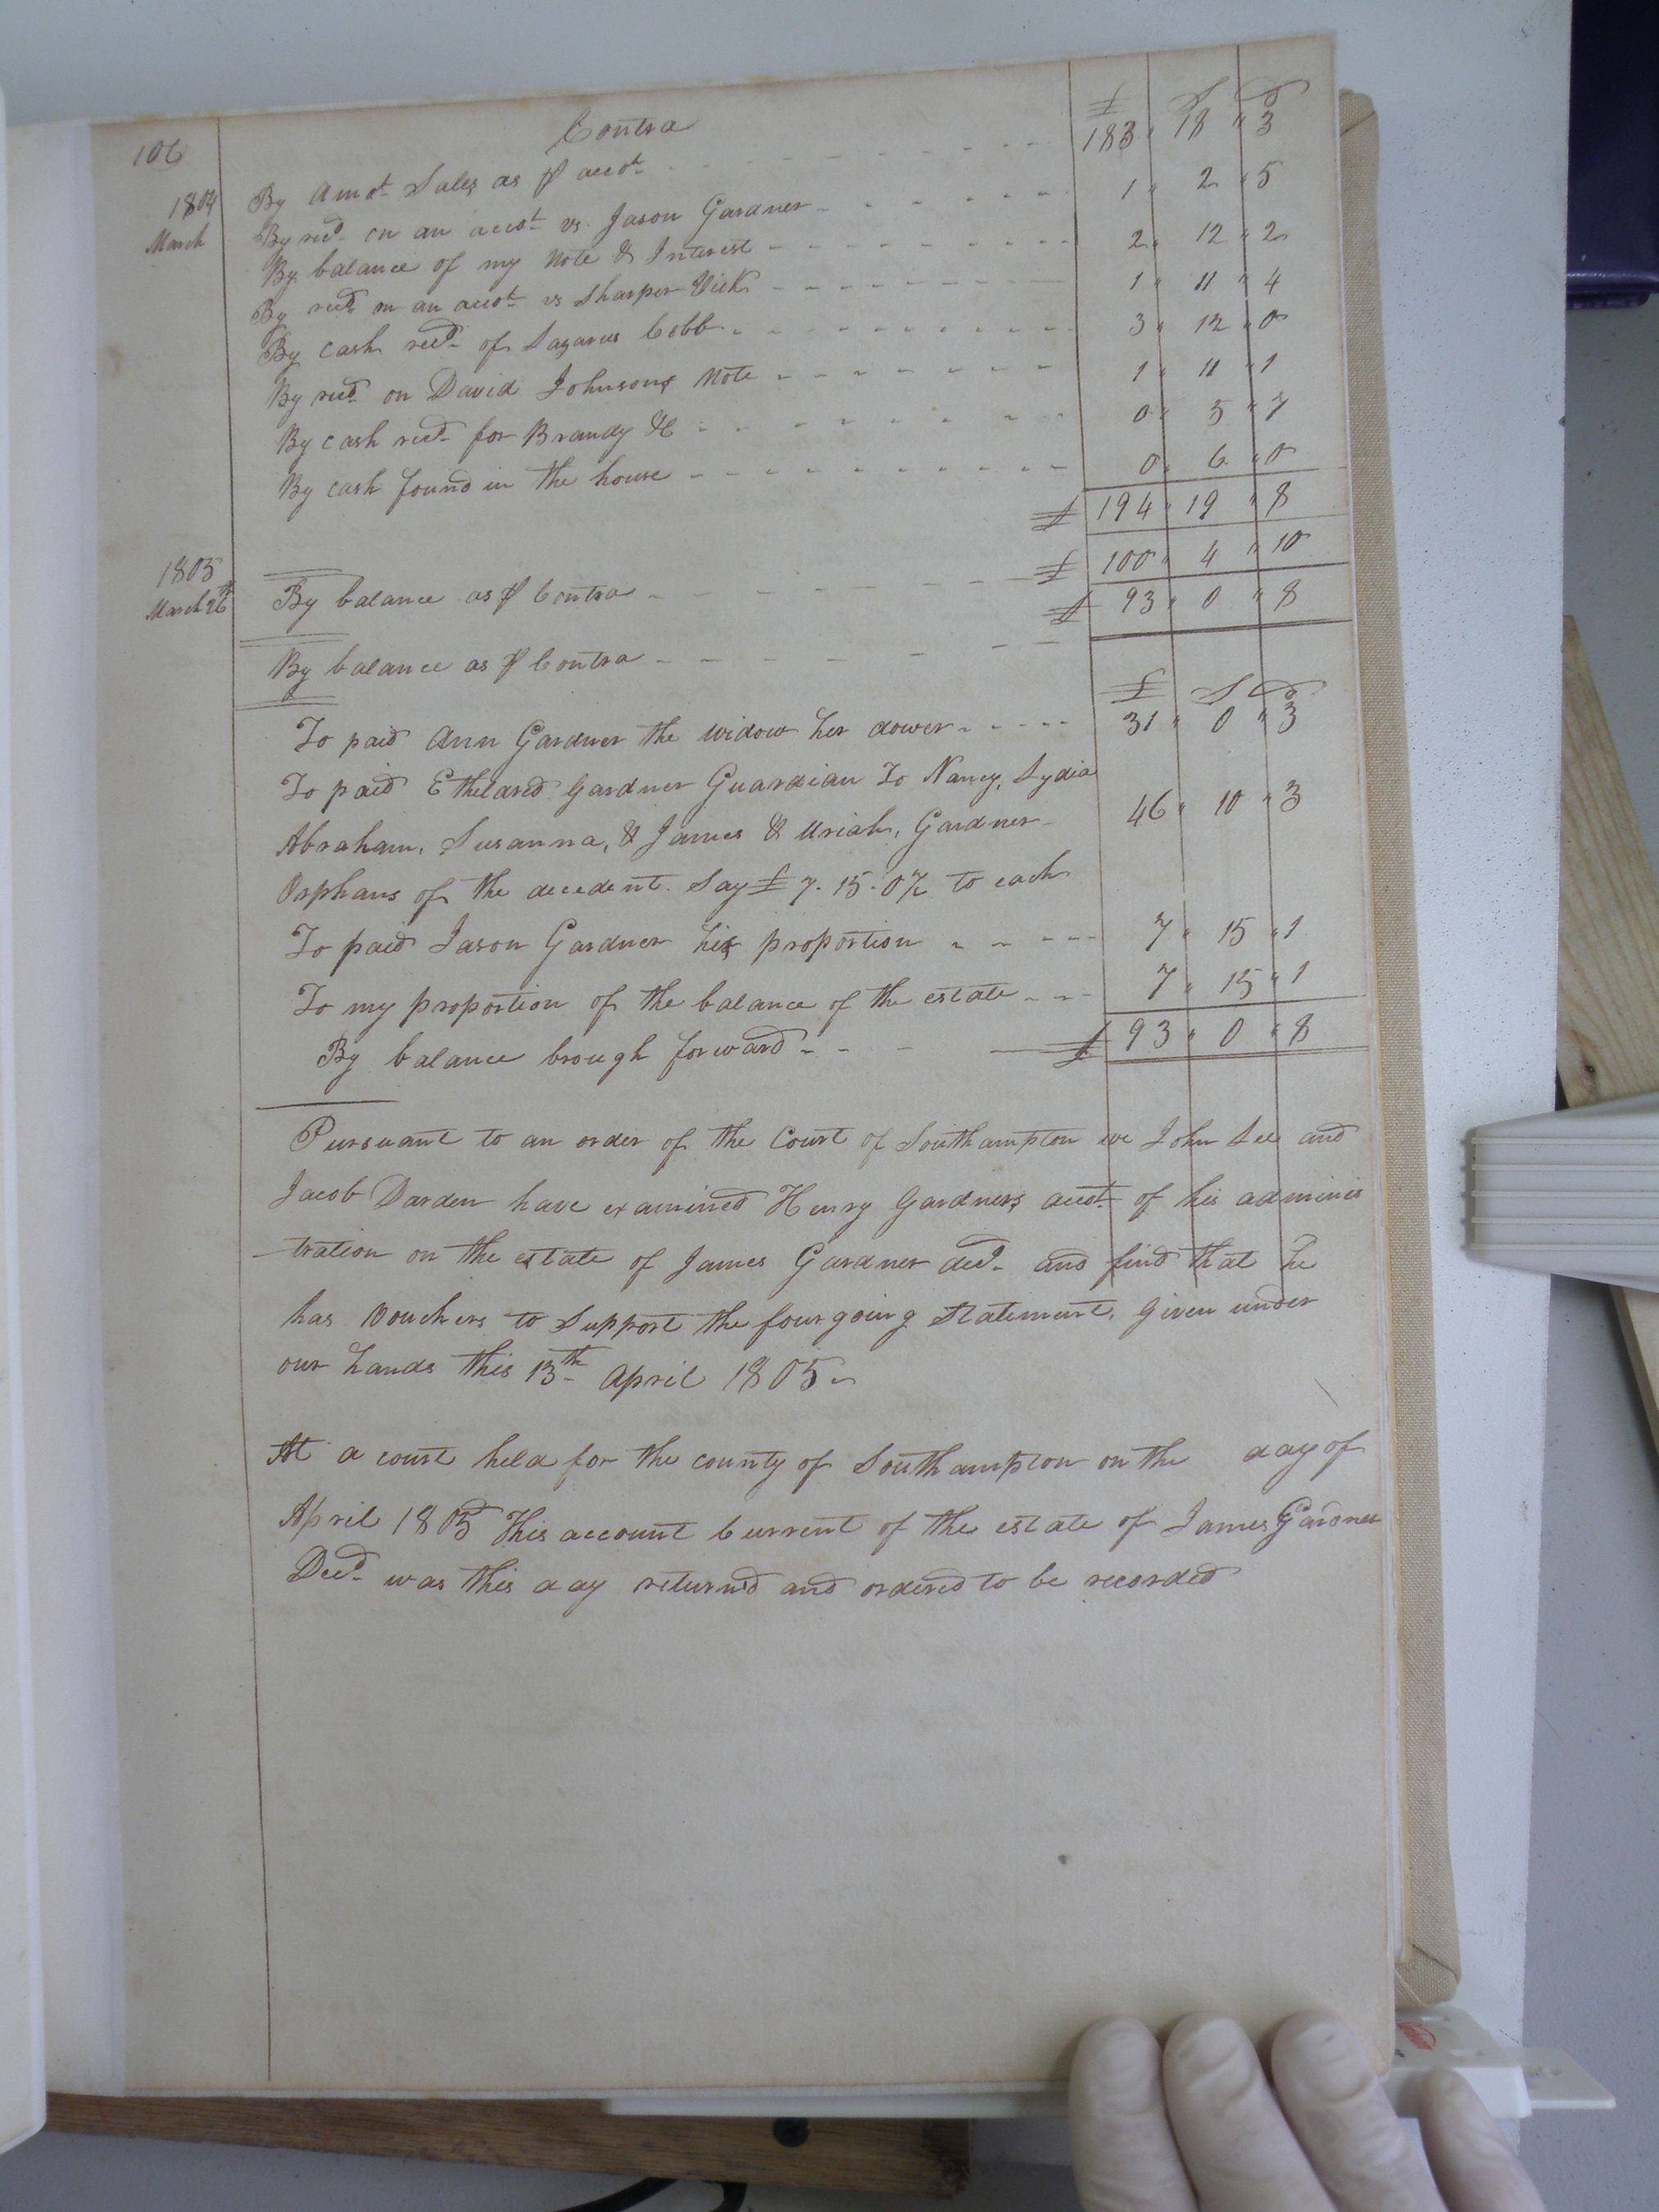 106
Contra
£ S D
1804 By Amot. Sales as ⅌ accot. - - - 183 " 18 " 3
March By recd. on an accot. vs. Jason Gardner - - - 1 " 2 " 5
By balance of my Note & Interest - - - 2 " 12 " 2
By recd. on an accot. vs Sharper Vick - - - 1 " 11 " 4
By cash recd. of Lazarus Cobb - - - 3 " 12 " 0
By recd. on David Johnsons Note - - - 1 " 11 " 1
By cash recd. for Brandy &C - - - 0 " 5 " 7
By cash found in the house - - - 0 " 6 " 0
£ 194 " 19 " 8
1805
March 26th By balance as ⅌ Contra - - - £ 100 " 4 " 10
£ 93 " 0 " 8
By balance as ⅌ Contra - - -
£ S D
To paid Ann Gardner the widow her dower - - - 31 " 0 " 3
To paid Etheldred Gardner Guardian To Nancy, Lydia
Abraham, Susanna, & James & Uriah, Gardner 46 " 10 " 3
Orphans of the decedent. Say £ 7. 15. 0½ to each
To paid Jason Gardner his proportion - - - 7 " 15 " 1
To my proportion of the balance of the estate - - - 7 " 15 " 1
By balance brough forward - - - £ 93 " 0 " 8
Pursuant to an order of the Court of Southampton we John Lee and
Jacob Darden have examined Henry Gardners accot. of his adminis
-tration on the estate of James Gardner decd. and find that he
has Vouchers to Support the fourgoing Statement. Given under
our hands this 13th. April 1805
At a court held for the county of Southampton on the day of
April 1805 This account Current of the estate of James Gardner
Decd. was this day returnd and ordered to be recorded